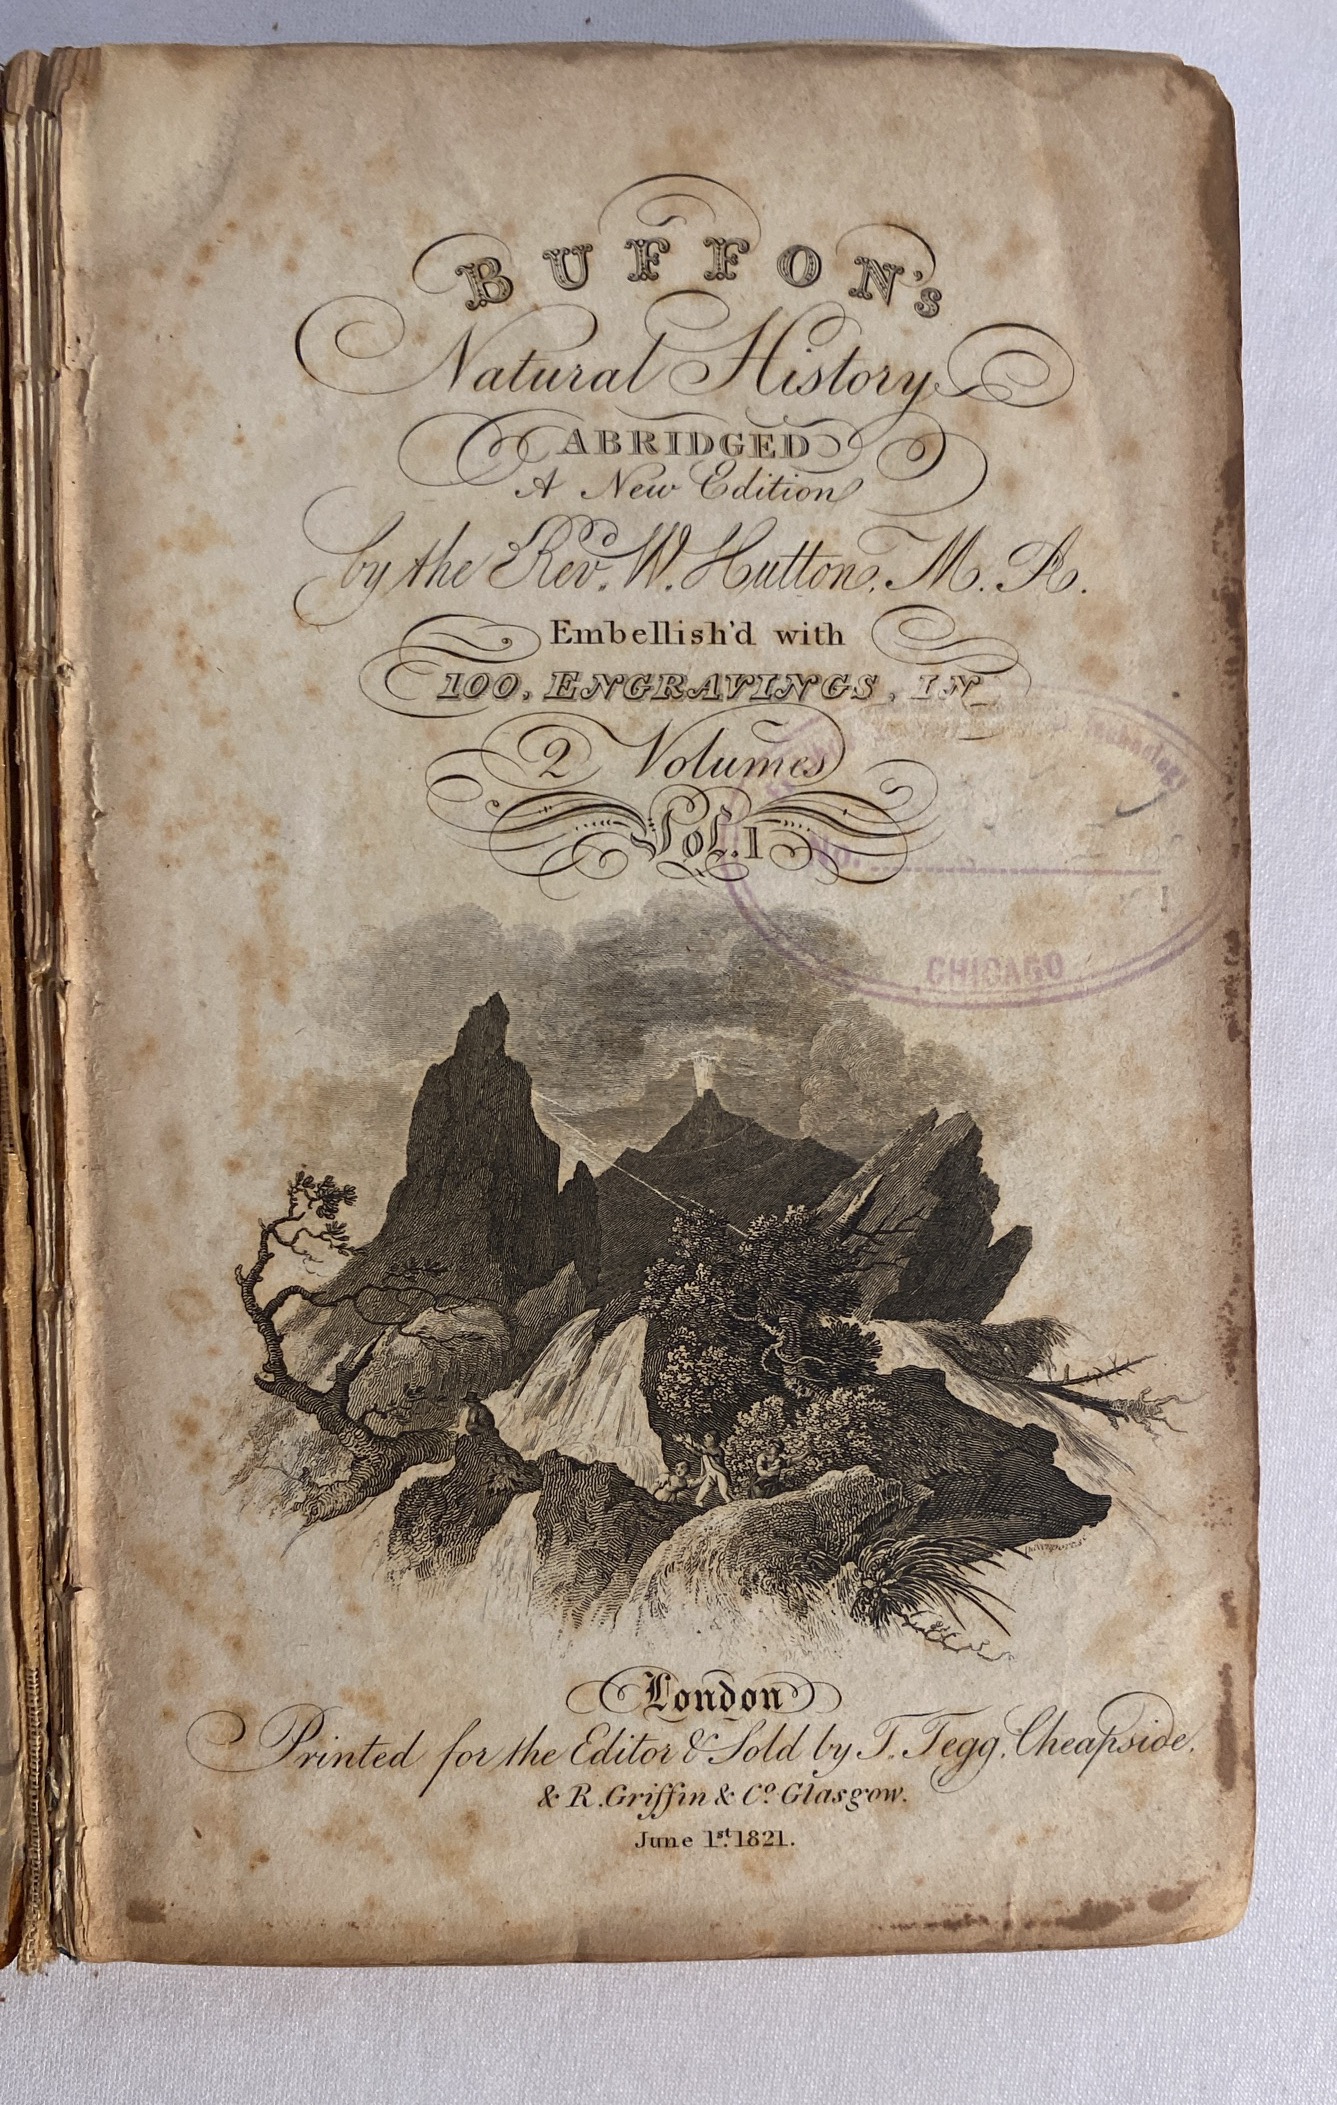 BUFFON's
Natural History
ABRIDGED
A New Edition
by the Rev. W. Hutton, M. A.
Embellish'd with
100, ENGRAVINGS, IN
2 Volumes
Vol. I
Technology
No.
CHICAGO
London
Printed for the Editor & Sold by T. Tegg, Cheapside,
& R. Griffin & Co. Glasgow.
June 1st. 1821.